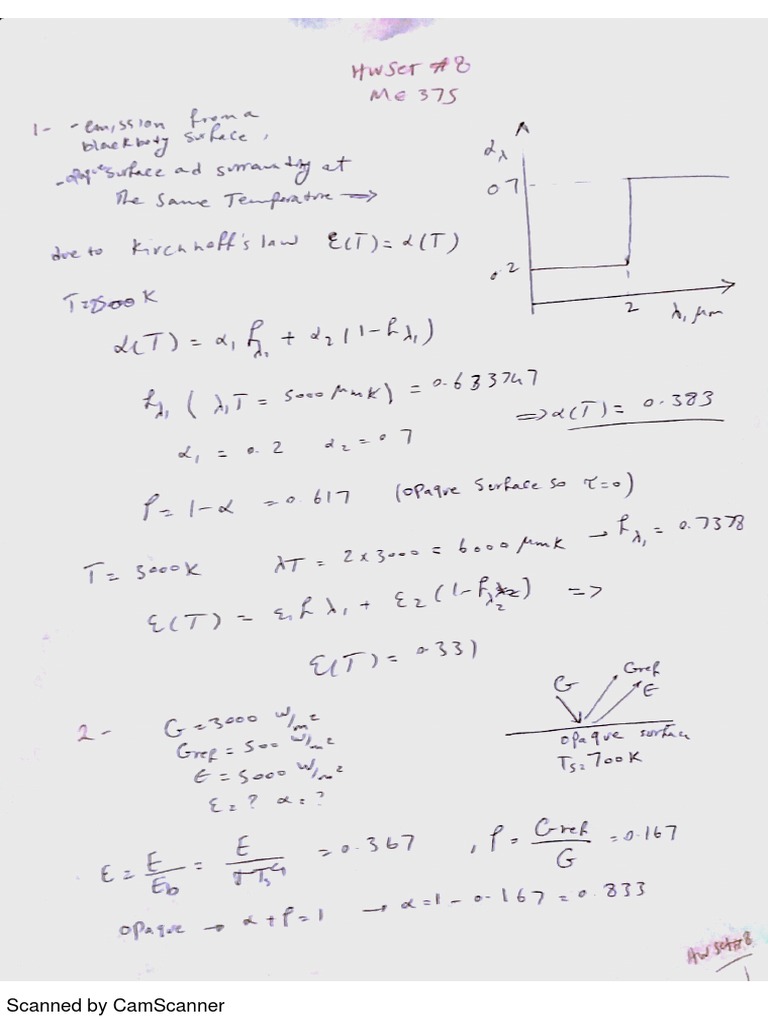 HW Set #8
ME 375
1- - emission from a
blackbody surface,
- opaque surface ad surrounding at
The Same Temperature →
due to Kirchhoff's law ε(T) = α(T)
α_λ
0.7
0.2
2
λ, μm
T=2500K
α(T) = α₁ f_λ₁ + α₂ (1-f_λ₁)
f_λ₁ ( λ₁T = 5000 μmK) = 0.633747
⇒ α(T) = 0.383
α₁ = 0.2 α₂ = 0.7
ρ = 1-α = 0.617 (opaque surface so τ=0)
T = 3000K λT = 2×3000 = 6000 μmK → f_λ₁ = 0.7378
ε(T) = ε₁ f_λ₁ + ε₂ (1-f_λ₂) =>
ε(T) = 0.331
2- G = 3000 W/m²
Gref = 500 W/m²
E = 5000 W/m²
ε = ? α = ?
G
Gref
E
opaque surface
Ts = 700K
ε = E/Eb = E/σTs⁴ = 0.367 , ρ = Gref/G = 0.167
opaque → α+ρ=1 → α=1-0.167=0.833
HW Set#8
1
Scanned by CamScanner